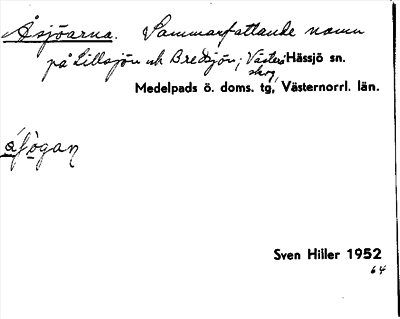 Åsjöarna. Sammanfattande namn
på Lillsjön och Bredsjön; Västers Hässjö sn.
skog,
Medelpads ö. doms. tg, Västernorrl. län.
Sven Hiller 1952
64